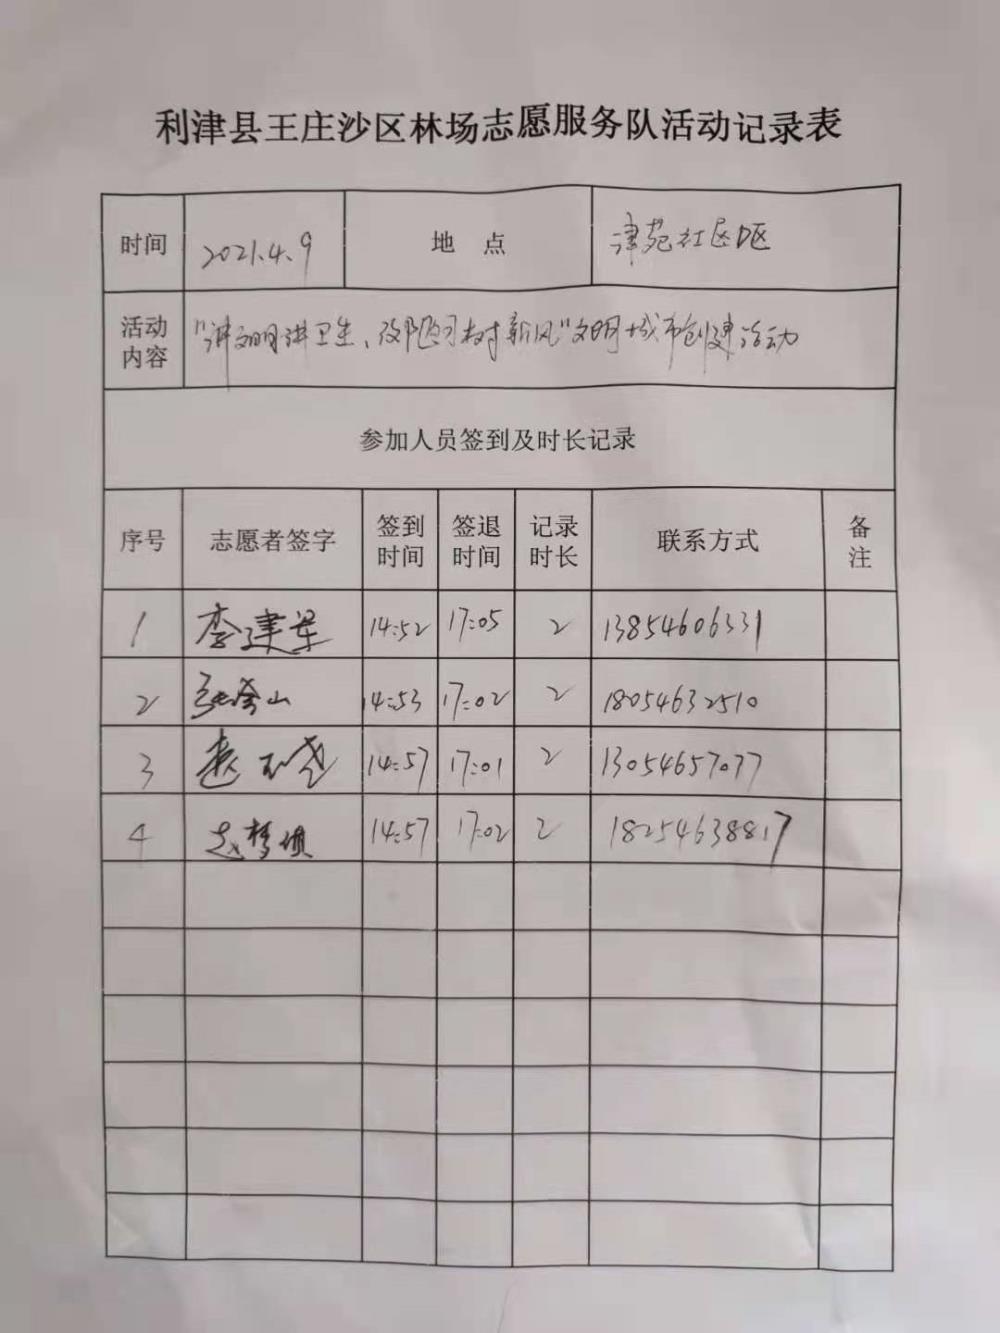 利津县王庄沙区林场志愿服务队活动记录表
时间 2021.4.9 地 点 津苑社区D区
活动内容 "讲文明讲卫生、改陋习树新风"文明城市创建活动
参加人员签到及时长记录
序号 志愿者签字 签到时间 签退时间 记录时长 联系方式 备注
1 李建军 14:52 17:05 2 13854606331
2 山 14:53 17:02 2 18054632510
3 14:57 17:01 2 13054657077
4 赵梦 14:57 17:02 2 18254638817